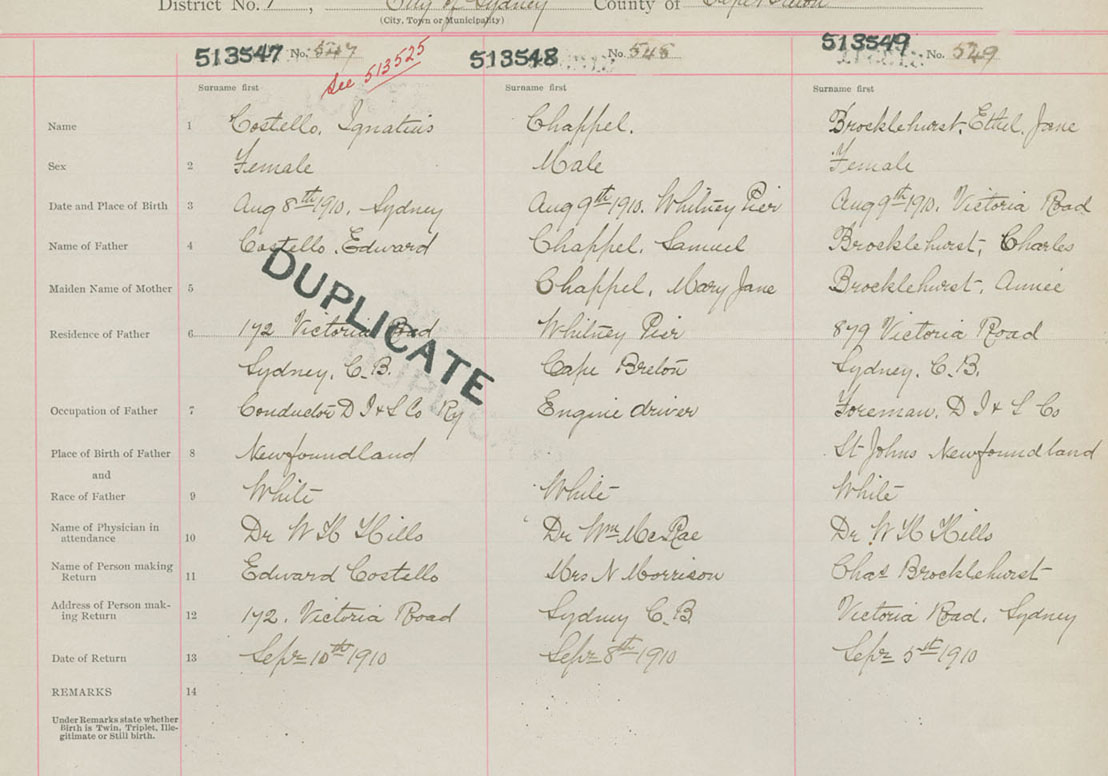 District No. 7, City of Sydney County of Cape Breton
(City, Town or Municipality)
513547 No. 547 See 513525 513548 No. 548 513549 No. 549
Surname first Surname first Surname first
Name 1 Costello, Ignatius Chappel. Brocklehurst, Ethel, Jane
Sex 2 Female Male Female
Date and Place of Birth 3 Aug 8th 1910, Sydney Aug 9th 1910. Whitney Pier Aug 9th 1910, Victoria Road
Name of Father 4 Costello, Edward Chappel, Samuel Brocklehurst, Charles
Maiden Name of Mother 5 Chappel, Mary Jane Brocklehurst, Annie
Residence of Father 6 172 Victoria Road Whitney Pier 879 Victoria Road
Sydney, C.B. Cape Breton Sydney, C.B.
DUPLICATE
Occupation of Father 7 Conductor D I & S Co Ry Engine driver Foreman, D I & S Co
Place of Birth of Father 8 Newfoundland St Johns Newfoundland
and
Race of Father 9 White White White
Name of Physician in
attendance 10 Dr W H Hills Dr Wm McRae Dr W H Hills
Name of Person making
Return 11 Edward Costello Mrs N Morrison Chas Brocklehurst
Address of Person mak-
ing Return 12 172, Victoria Road Sydney C.B Victoria Road, Sydney
Date of Return 13 Sepr 10th 1910 Sepr 8th 1910 Sepr 5st 1910
REMARKS 14
Under Remarks state whether
Birth is Twin, Triplet, Ille-
gitimate or Still birth.